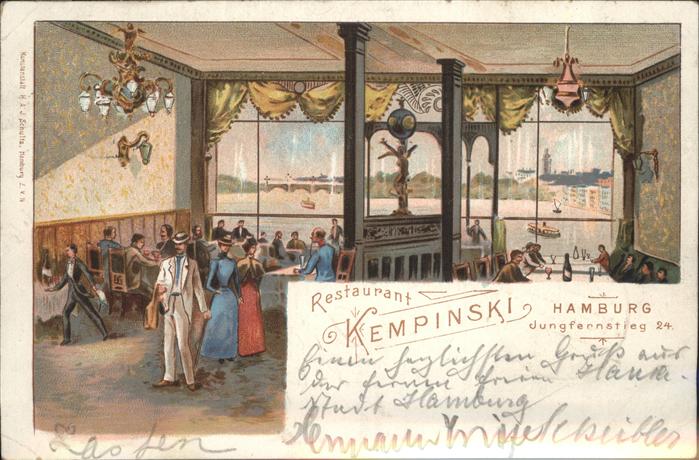 Kunstanstalt H. & J. Schultz, Hamburg I. V. N
Restaurant
KEMPINSKI
HAMBURG
Jungfernstieg 24.
Einen herzlichsten Gruß aus
der fernen freien Hansa-
stadt Hamburg
Hermann Scheibler